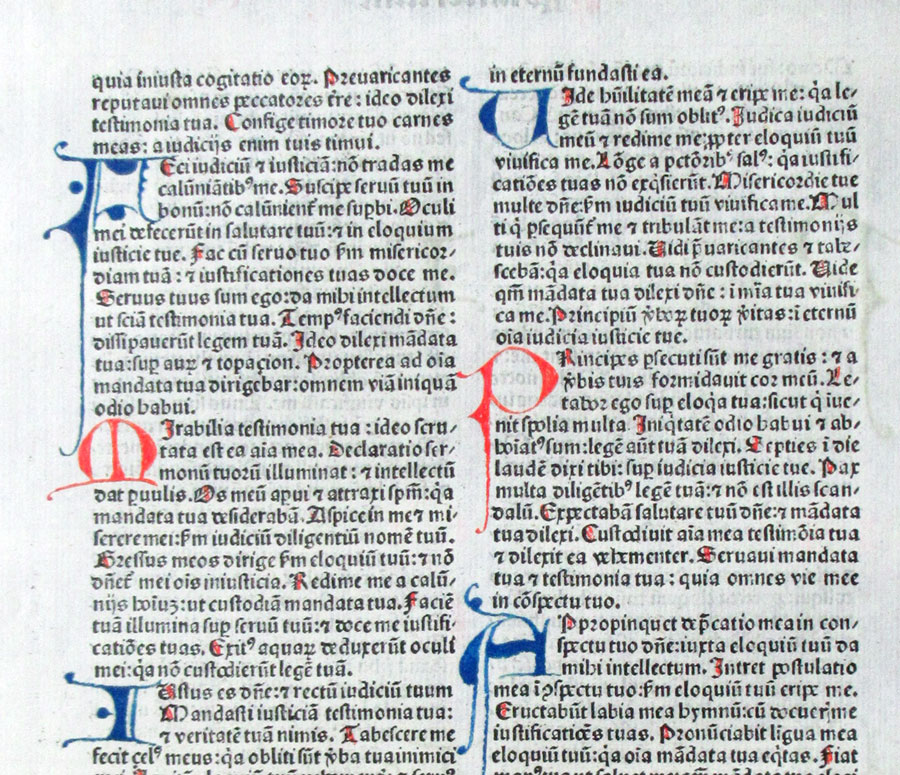 quia iniusta cogitatio eoꝝ. Preuaricantes
reputaui omnes peccatores tre: ideo dilexi
testimonia tua. Confige timore tuo carnes
meas: a iudicijs enim tuis timui.
FEci iudiciū ⁊ iusticiā: nō tradas me
calūniātibꝰ me. Suscipe seruū tuū in
bonū: nō calūnient̄ me supbi. Oculi
mei defecerūt in salutare tuū: ⁊ in eloquium
iusticie tue. Fac cū seruo tuo ẜm misericor-
diam tuā: ⁊ iustificationes tuas doce me.
Seruus tuus sum ego: da mihi intellectum
ut sciā testimonia tua. Tempꝰ faciendi dn̄e:
dissipauerūt legem tuā. Ideo dilexi mādata
tua: sup aurꝫ ⁊ topaçion. Propterea ad oīa
mandata tua dirigebar: omnem viā iniquā
odio habui.
MIrabilia testimonia tua: ideo scru-
tata est ea aīa mea. Declaratio ser-
monū tuorū illuminat: ⁊ intellectū
dat puulis. Os meū apui ⁊ attraxi sp̄m: q̄a
mandata tua desiderabā. Aspice in me ⁊ mi-
serere mei: ẜm iudiciū diligentiū nomē tuū.
Gressus meos dirige ẜm eloquiū tuū: ⁊ nō
dn̄et̄ mei ois iniusticia. Redime me a calū-
nijs hoīuꝫ: ut custodiā mandata tua. Faciē
tuā illumina sup seruū tuū: ⁊ doce me iustifi-
catiōes tuas. Exitꝰ aquaꝝ deduxerūt oculi
mei: q̄a nō custodierūt legē tuā.
IUstus es dn̄e: ⁊ rectū iudiciū tuum
Mandasti iusticiā testimonia tua:
⁊ veritatē tuā nimis. Tabescere me
fecit çelꝰ meus: q̄a obliti sūt v̄ba tua inimici
in eternū fundasti ea.
UIde hūilitatē meā ⁊ eripe me: q̄a le-
gē tuā nō sum oblitꝰ. Judica iudiciū
meū ⁊ redime me: ꝓpter eloquiū tuū
viuifica me. Lōge a pctōribꝰ salꝰ: q̄a iustifi-
catiōes tuas nō exq̄sierūt. Misericordie tue
multe dn̄e: ẜm iudiciū tuū viuifica me. Mul
ti q̄ psequūt̄ me ⁊ tribulāt me: a testimonijs
tuis nō declinaui. Uidi p̄uaricantes ⁊ tabe-
scebā: q̄a eloquia tua nō custodierūt. Uide
qm̄ mādata tua dilexi dn̄e: i mīa tua viuifi
ca me. Principiū v̄boꝝ tuoꝝ v̄itas: i eternū
oīa iudicia iusticie tue.
PRincipes psecuti sūt me gratis: ⁊ a
v̄bis tuis formidauit cor meū. Le-
tabor ego sup eloq̄a tua: sicut q̄ iue-
nit spolia multa. Iniq̄tatē odio habui ⁊ ab-
hoīatꝰ sum: legē aūt tuā dilexi. Septies ī die
laudē dixi tibi: sup iudicia iusticie tue. Pax
multa diligētibꝰ legē tuā: ⁊ nō est illis scan-
dalū. Expectabā salutare tuū dn̄e: ⁊ mādata
tua dilexi. Custodiuit aīa mea testimōia tua
⁊ dilexit ea vehementer. Seruaui mandata
tua ⁊ testimonia tua: quia omnes vie mee
in cōspectu tuo.
APpropinquet dep̄catio mea in con-
spectu tuo dn̄e: iuxta eloquiū tuū da
mihi intellectum. Intret postulatio
mea i ꝯspectu tuo: ẜm eloquiū tuū eripe me.
Eructabūt labia mea hymnū: cū docuer̄ me
iustificatiōes tuas. Pronūciabit ligua mea
eloquiū tuū: q̄a oīa mādata tua eq̄tas. Fiat